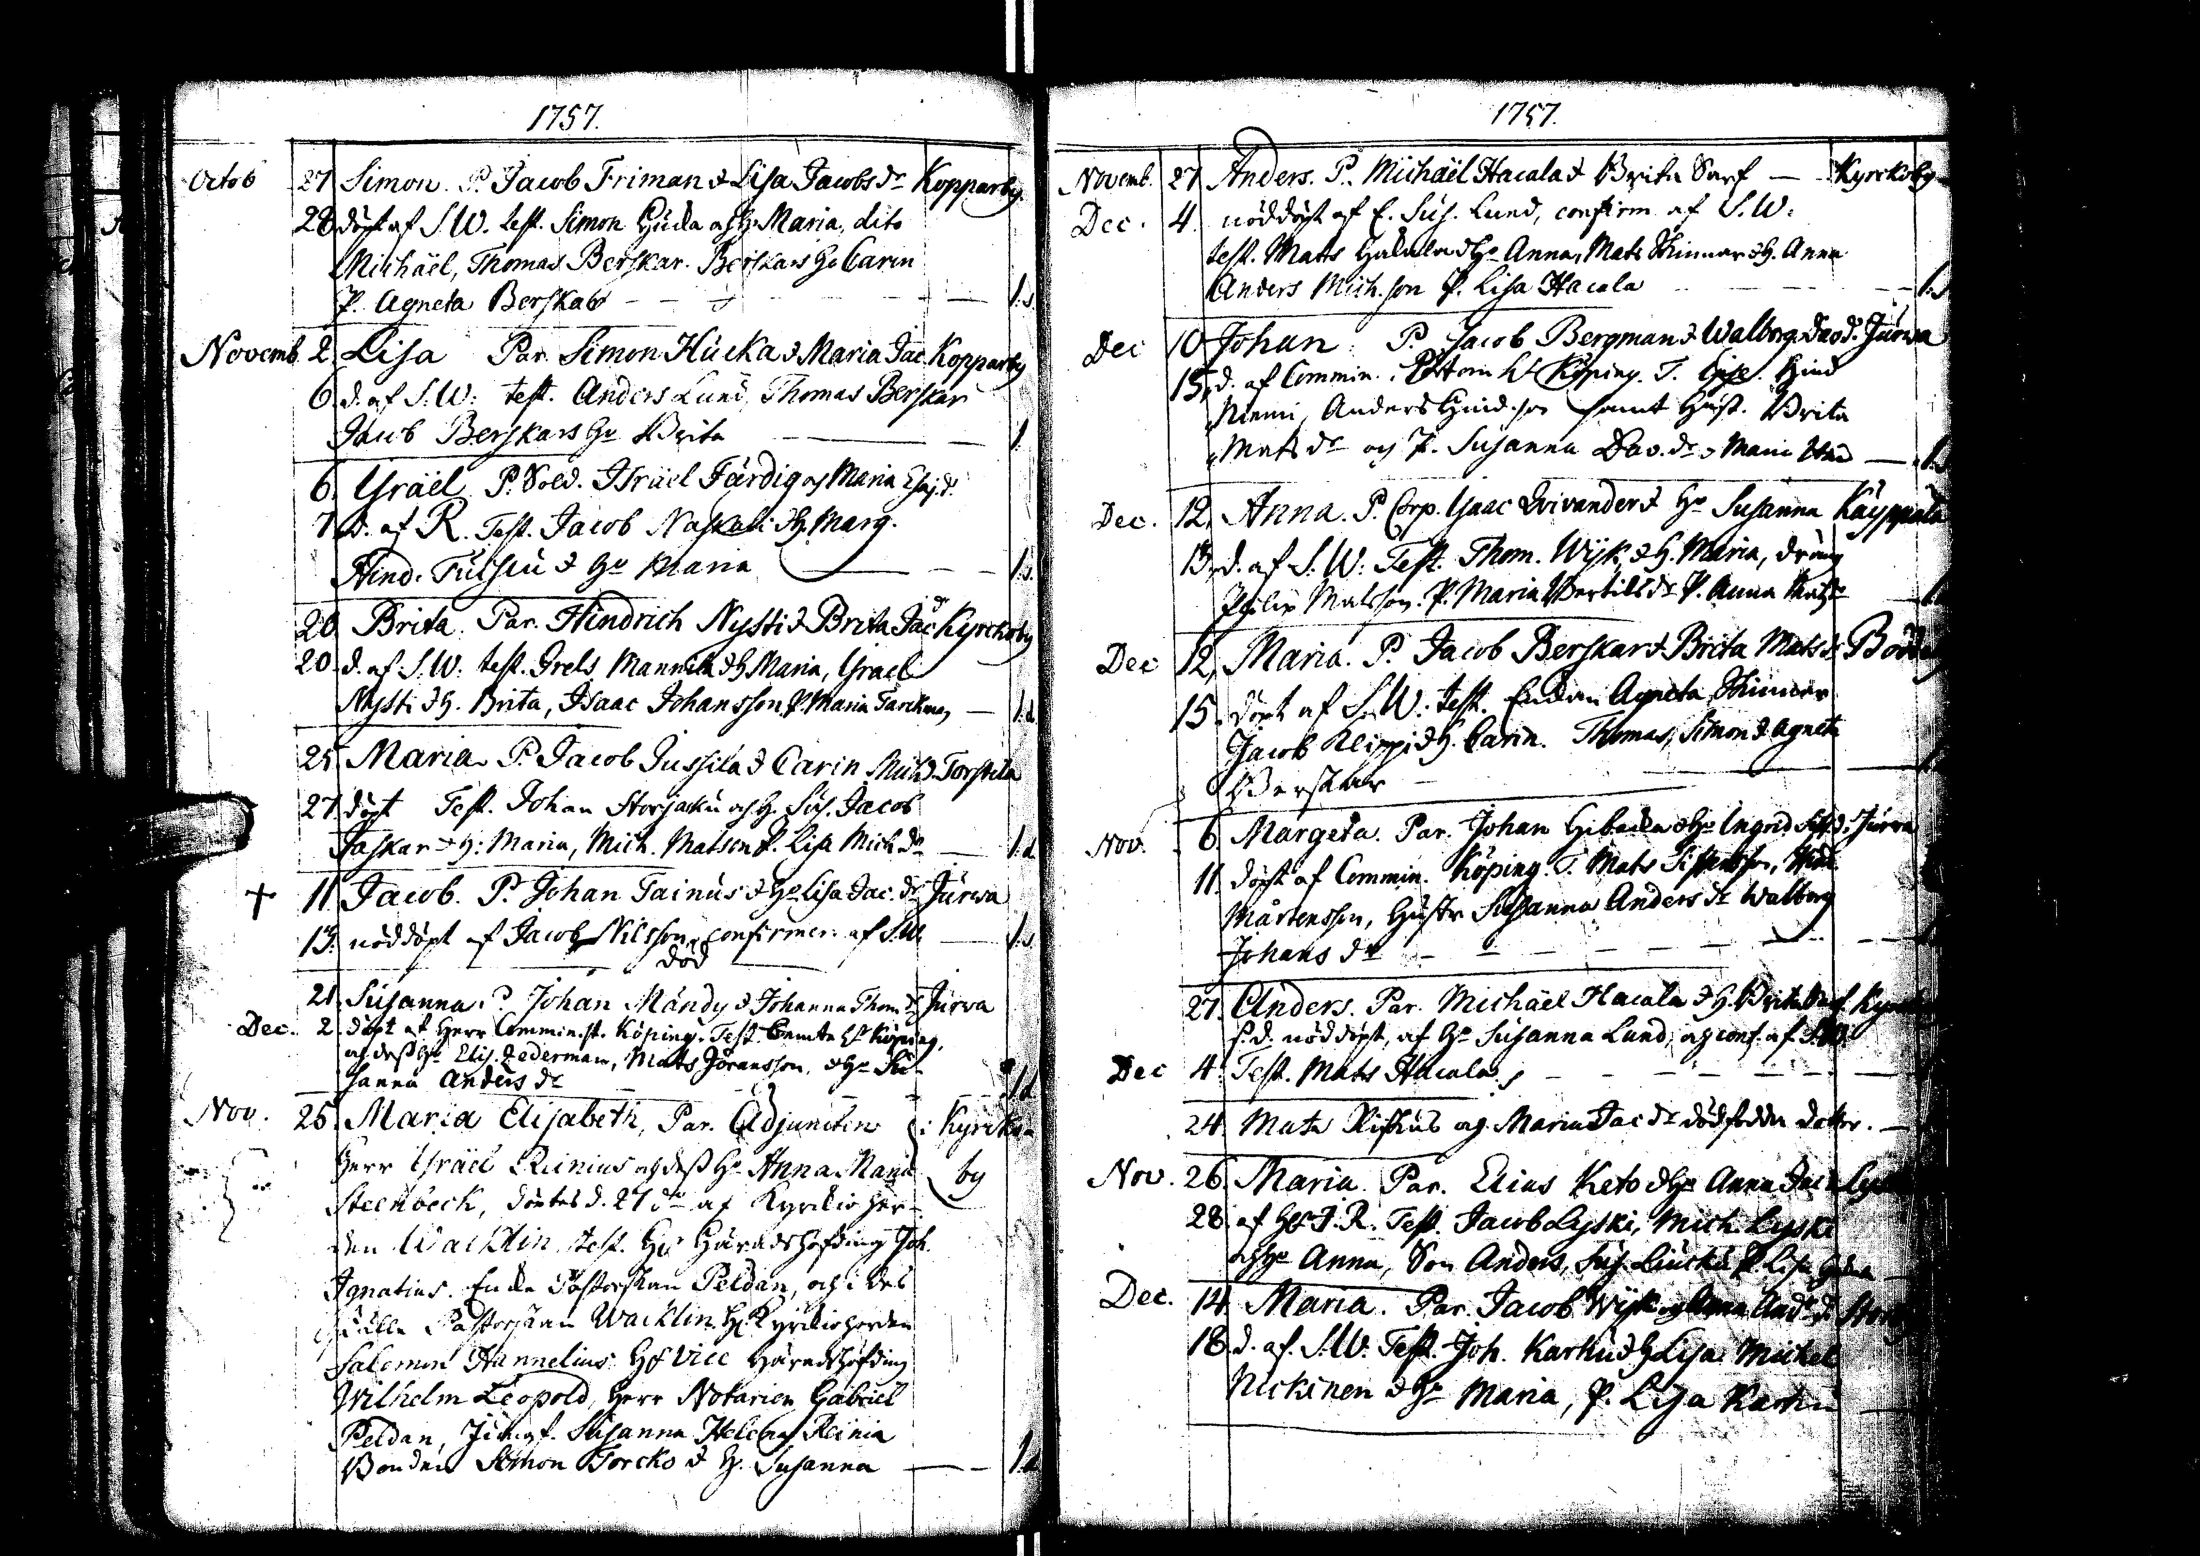 1757.
Octob 27 Simon. P. Jacob Friman & Lisa Jacobs dr Kopparby
28 döpt af S.W. test. Simon Hucka och H. Maria, dito
Michäel, Thomas Berskar. Berskars Ho Carin
P. Agneta Berskar 1.s.
Novemb. 2. Lisa Par. Simon Hucka & Maria Jac. Kopparby
6. d. af S.W. test. Anders Lund, Thomas Berskar
Jacob Berskars Ho Brita 1.
6. Israël P. Sold. Israel Färdig och Maria Esaj. dr
7. d. af R. Test. Jacob & H. Marg.
Hind. & Ho Maria 1.s.
20. Brita. Par. Hindrich Nysti & Brita Jac dr Kyrckoby
20. d. af S.W. test. Grels Mannila & H Maria, Israel
Nysti & H. Brita, Isaac Johansson, P. Maria 1.d.
25. Maria P. Jacob Jussila & Carin Mich. d. Torstila
27. döpt Test. Johan Storjaku och H. Sus. Jacob
Jaskar & H. Maria, Mich. Matson P. Lisa Mich dr 1.d.
† 11. Jacob. P. Johan Tainus & Ho Lisa Jac. dr Jurwa
13. nöddöpt af Jacob Nilsson, confirmer. af S.W. 1.s.
död
21. Susanna. P. Johan Mändy & Johanna Thom. dr Jurwa
Dec. 2. döpt af Herr Comminist. Köping. Test. Hr Köping,
och dess Ho Elis. Federman, Mats Jöransson, & Ho Su-
sanna Anders dr 1.d.
Nov. 25. Maria Elisabeth, Par. Adjuncten Kyrcko-
Herr Israël Reinius och dess Ho Anna Maria by
Steenbeck, döptes d. 27 dr af Kyrckio her-
den Wacklin, test. Hr Häradshöfding Joh.
Ignatius. Enke Pastorskan Peldan, och i des
ställe Pastorskan Wacklin. Hr Kyrckioherden
Salomon Hannelius Hr Vice Häradshöfding
Wilhelm Leopold, Herr Notarien Gabriel
Peldan, Jungf. Susanna Helena Reinia
Bonden Simon Torcko & H. Susanna 1.d.
1757.
Novemb. 27 Anders. P. Michäel Hacala & Brita Sarf Kyrckoby
Dec. 4. nöddöpt af E. Sus. Lund, confirm af S.W.
test. Matts Hacala & Ho Anna, Mats Skinnar & H. Anna
Anders Mich. son P. Lisa Hacala 1.s
Dec 10 Johan P. Jacob Bergman & Walborg Dav. d. Jurwa
15. d. af Commin. Köping. T. Hind
Niemi, Anders Hind. son samt Hust. Brita
Mats dr och P. Susanna Dav. dr 1.s
Dec. 12. Anna. P. Corp. Isaac Qvivander & Ho Susanna Käyppälä
13. d. af S.W. Test. Thom. Wijk & H. Maria, dräng
Philip Matsson. P. Maria Bertils dr P. Anna Mats dr
Dec 12. Maria. P. Jacob Berskar & Brita Mats dr
15. döpt af S.W. test. Enkan Agneta Skinnar
Jacob Klippi & H. Carin. Thomas, Simon & Agneta
Berskar
Nov. 6. Margeta. Par. Johan & Ho Ingrid Jurwa
11. döpt af Commin. Köping. T. Mats
Mårtensson, Hustr Susanna Anders dr Walborg
Johans dr
27. Anders. Par. Michäel Hacala & H. Brita Sarf.
s.d. nöddöpt, af Ho Susanna Lund, och conf. af S.W.
Dec 4. Test. Mats Hacala
24. Mats och Maria Jac dr dödfödda dotter.
Nov. 26. Maria. Par. Elias Keto & Ho Anna Jac
28. af Hr J.R. Test. Jacob Lyski, Mich. Lyski
och Ho Anna, Son Anders, Sus. P. Lisa
Dec. 14. Maria. Par. Jacob Wijk och Anna And. d.
18. d. af. S.W. Test. Joh. Karku & H Lisa Mickel
Nickinen & Ho Maria, P. Lisa Karku